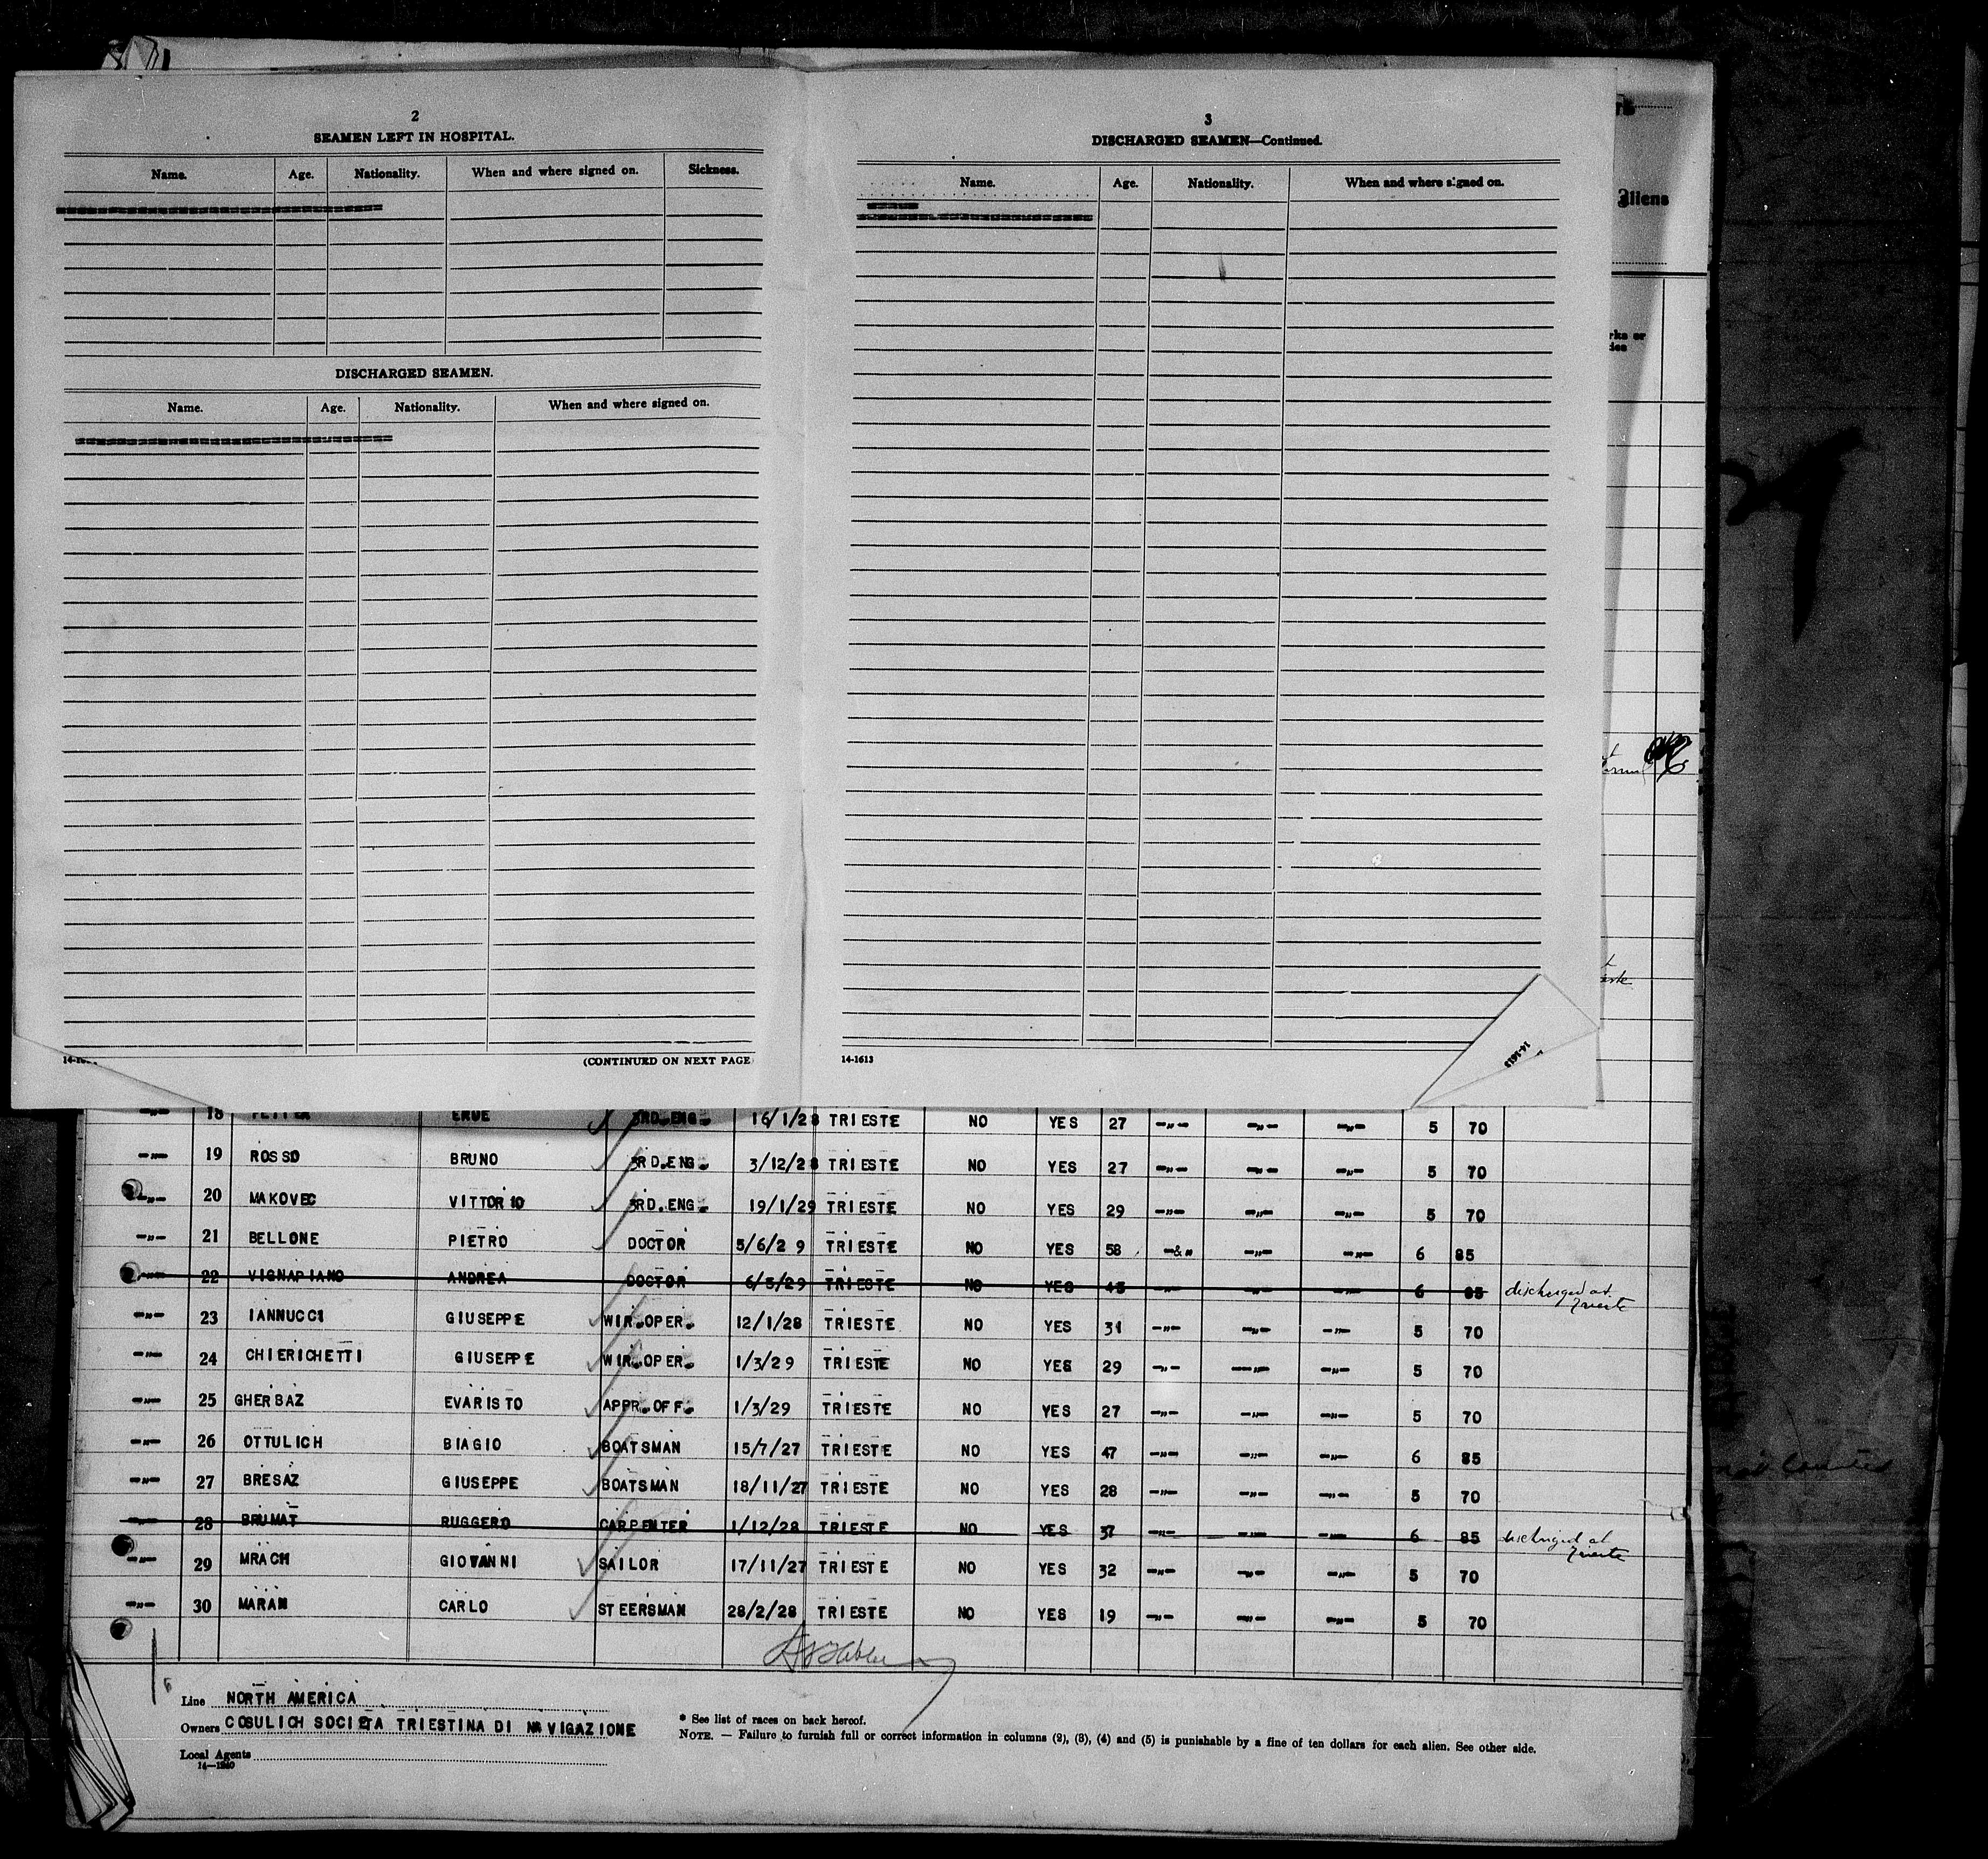 2
SEAMEN LEFT IN HOSPITAL.
Name. Age. Nationality. When and where signed on. Sickness.
DISCHARGED SEAMEN.
Name. Age. Nationality. When and where signed on.
(CONTINUED ON NEXT PAGE
3
DISCHARGED SEAMEN—Continued.
Name. Age. Nationality. When and where signed on.
14-1613
14-1613
aliens
rks or
18 ERDE 3RD.ENG. 16/1/28 TRIESTE NO YES 27 -"- -"- -"- 5 70
-"- 19 ROSSO BRUNO 3RD.ENG. 3/12/28 TRIESTE NO YES 27 -"- -"- -"- 5 70
-"- 20 MAKOVEC VITTORIO 3RD.ENG. 19/1/29 TRIESTE NO YES 29 -"- -"- -"- 5 70
-"- 21 BELLONE PIETRO DOCTOR 5/6/29 TRIESTE NO YES 58 -&" -"- -"- 6 85
-"- 22 VIGNAPIANO ANDREA DOCTOR 6/5/29 TRIESTE NO YES 45 -"- -"- -"- 6 85 discharged at
Trieste
-"- 23 IANNUCCI GIUSEPPE WIR.OPER. 12/1/28 TRIESTE NO YES 31 -"- -"- -"- 5 70
-"- 24 CHIERICHETTI GIUSEPPE WIR.OPER. 1/3/29 TRIESTE NO YES 29 -"- -"- -"- 5 70
-"- 25 GHERBAZ EVARISTO APPR.OFF. 1/3/29 TRIESTE NO YES 27 -"- -"- -"- 5 70
-"- 26 OTTULICH BIAGIO BOATSMAN 15/7/27 TRIESTE NO YES 47 -"- -"- -"- 6 85
-"- 27 BRESAZ GIUSEPPE BOATSMAN 18/11/27 TRIESTE NO YES 28 -"- -"- -"- 5 70
-"- 28 BRUMAT RUGGERO CARPENTER 1/12/28 TRIESTE NO YES 37 -"- -"- -"- 6 85 discharged at
Trieste
-"- 29 MRACH GIOVANNI SAILOR 17/11/27 TRIESTE NO YES 32 -"- -"- -"- 5 70
-"- 30 MARAN CARLO STEERSMAN 28/2/28 TRIESTE NO YES 19 -"- -"- -"- 5 70
Line NORTH AMERICA
Owners COSULICH SOCIETA TRIESTINA DI NAVIGAZIONE
Local Agents
* See list of races on back hereof.
NOTE. — Failure to furnish full or correct information in columns (2), (3), (4) and (5) is punishable by a fine of ten dollars for each alien. See other side.